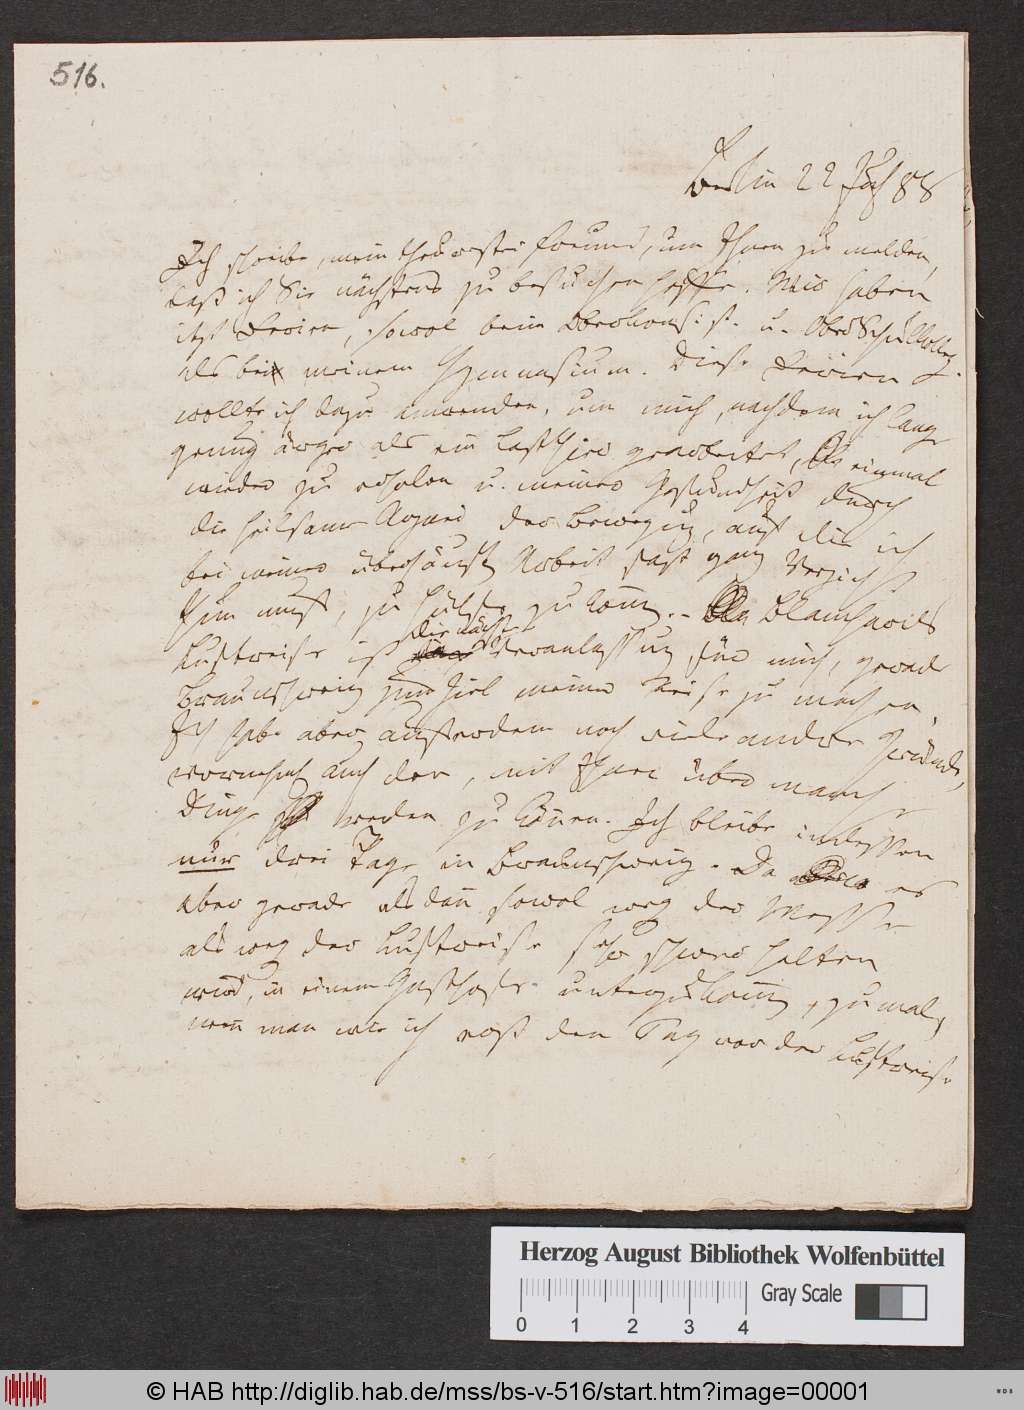 516.
Berlin 22 Jul 88
Ich schreibe, mein theuerster Freund, um Ihnen zu melden,
daß ich Sie nächstens zu besuchen hoffe. Wir haben
itzt Ferien, sowol beim Oberkons. st. u. OberSchulkolleg.
als bei meinem Gymnasium. Diese Ferien
wollte ich dazu anwenden, um mich, nachdem ich lang
genug ärger als ein Lastthier gearbeitet, einmal
wieder zu erholen u. meiner Gesundheit durch
die heilsame Arznei der Bewegung, auf die ich
bei meiner überhäuften Arbeit fast ganz Verzicht
thun muß, zu Hülfe zu kommen. - Blanchards
Luftreise ist die nächste Veranlassung für mich, gerade
Braunschweig zum Ziel meiner Reise zu machen.
Ich habe aber außerdem noch viele andre Gründe,
vornehmlich auch den, mit Ihnen über manche
Dinge reden zu können. Ich bleibe indessen
nur drei Tage in Braunschweig. Da es
aber gerade alsdann sowol weg der Messe
als weg der Luftreise sehr schwer halten
wird, in einem Gasthofe unterzukommen, zumal,
wenn man wie ich erst den Tag vor der Luftreise
Herzog August Bibliothek Wolfenbüttel
Gray Scale
0 1 2 3 4
© HAB http://diglib.hab.de/mss/bs-v-516/start.htm?image=00001